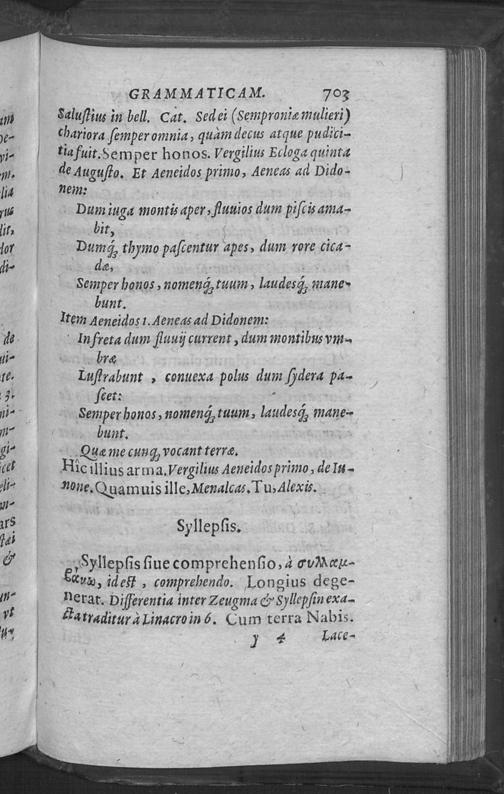 GRAMMATICAM. 703
Salustius in bell. Cat. Sed ei (Semproniæ mulieri)
chariora semper omnia, quàm decus atque pudici-
tia fuit. Semper honos. Vergilius Ecloga quinta
de Augusto. Et Aeneidos primo, Aeneas ad Dido-
nem:
Dum iuga montis aper, fluuios dum piscis ama-
bit,
Dumq́; thymo pascentur apes, dum rore cica-
dæ,
Semper honos, nomenq́; tuum, laudesq́; mane-
bunt.
Item Aeneidos 1. Aeneas ad Didonem:
In freta dum fluuij current, dum montibus vm-
bræ
Lustrabunt, conuexa polus dum sydera pa-
scet:
Semper honos, nomenq́; tuum, laudesq́; mane-
bunt.
Quæ me cunq; vocant terræ.
Hic illius arma. Vergilius Aeneidos primo, de Iu-
none. Quamuis ille, Menalcas. Tu, Alexis.
Syllepsis.
Syllepsis siue comprehensio, à συλλαμ-
βάνω, id est, comprehendo. Longius dege-
nerat. Differentia inter Zeugma & Syllepsin exa-
cta traditur à Linacro in 6. Cum terra Nabis.
y 4 Lace-